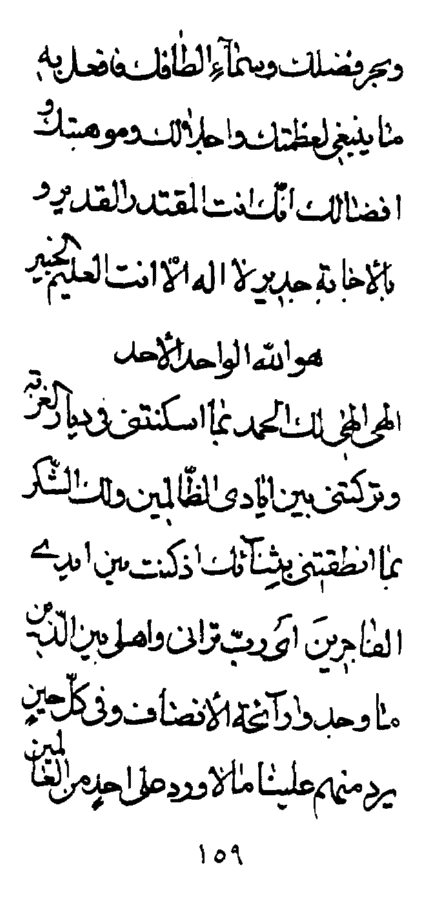 وبحر فضلك وسمآء الطافك فافعل به
ما ينبغى لعظمتك واجلالك وموهبتك و
افضالك انّك انت المقتدر القدير و
بالأجابة جدير لا اله الّا انت العليم الخبير
هو الله الواحد الأحد
الهى الهى لك الحمد بما اسكنتنى فى ديار الغربة
وتركتنى بين ايادى الظّالمين ولك الشّكر
بما انطقتنى بثنآئك اذ كنت بين ايدى
الفاجرين اى ربّ ترانى واهلى بين الّذين
ما وجدوا رآئحة الأنصاف وفى كلّ حينٍ
يرد منهم علينا ما لا ورد على احدٍ من العالمين
١٥٩